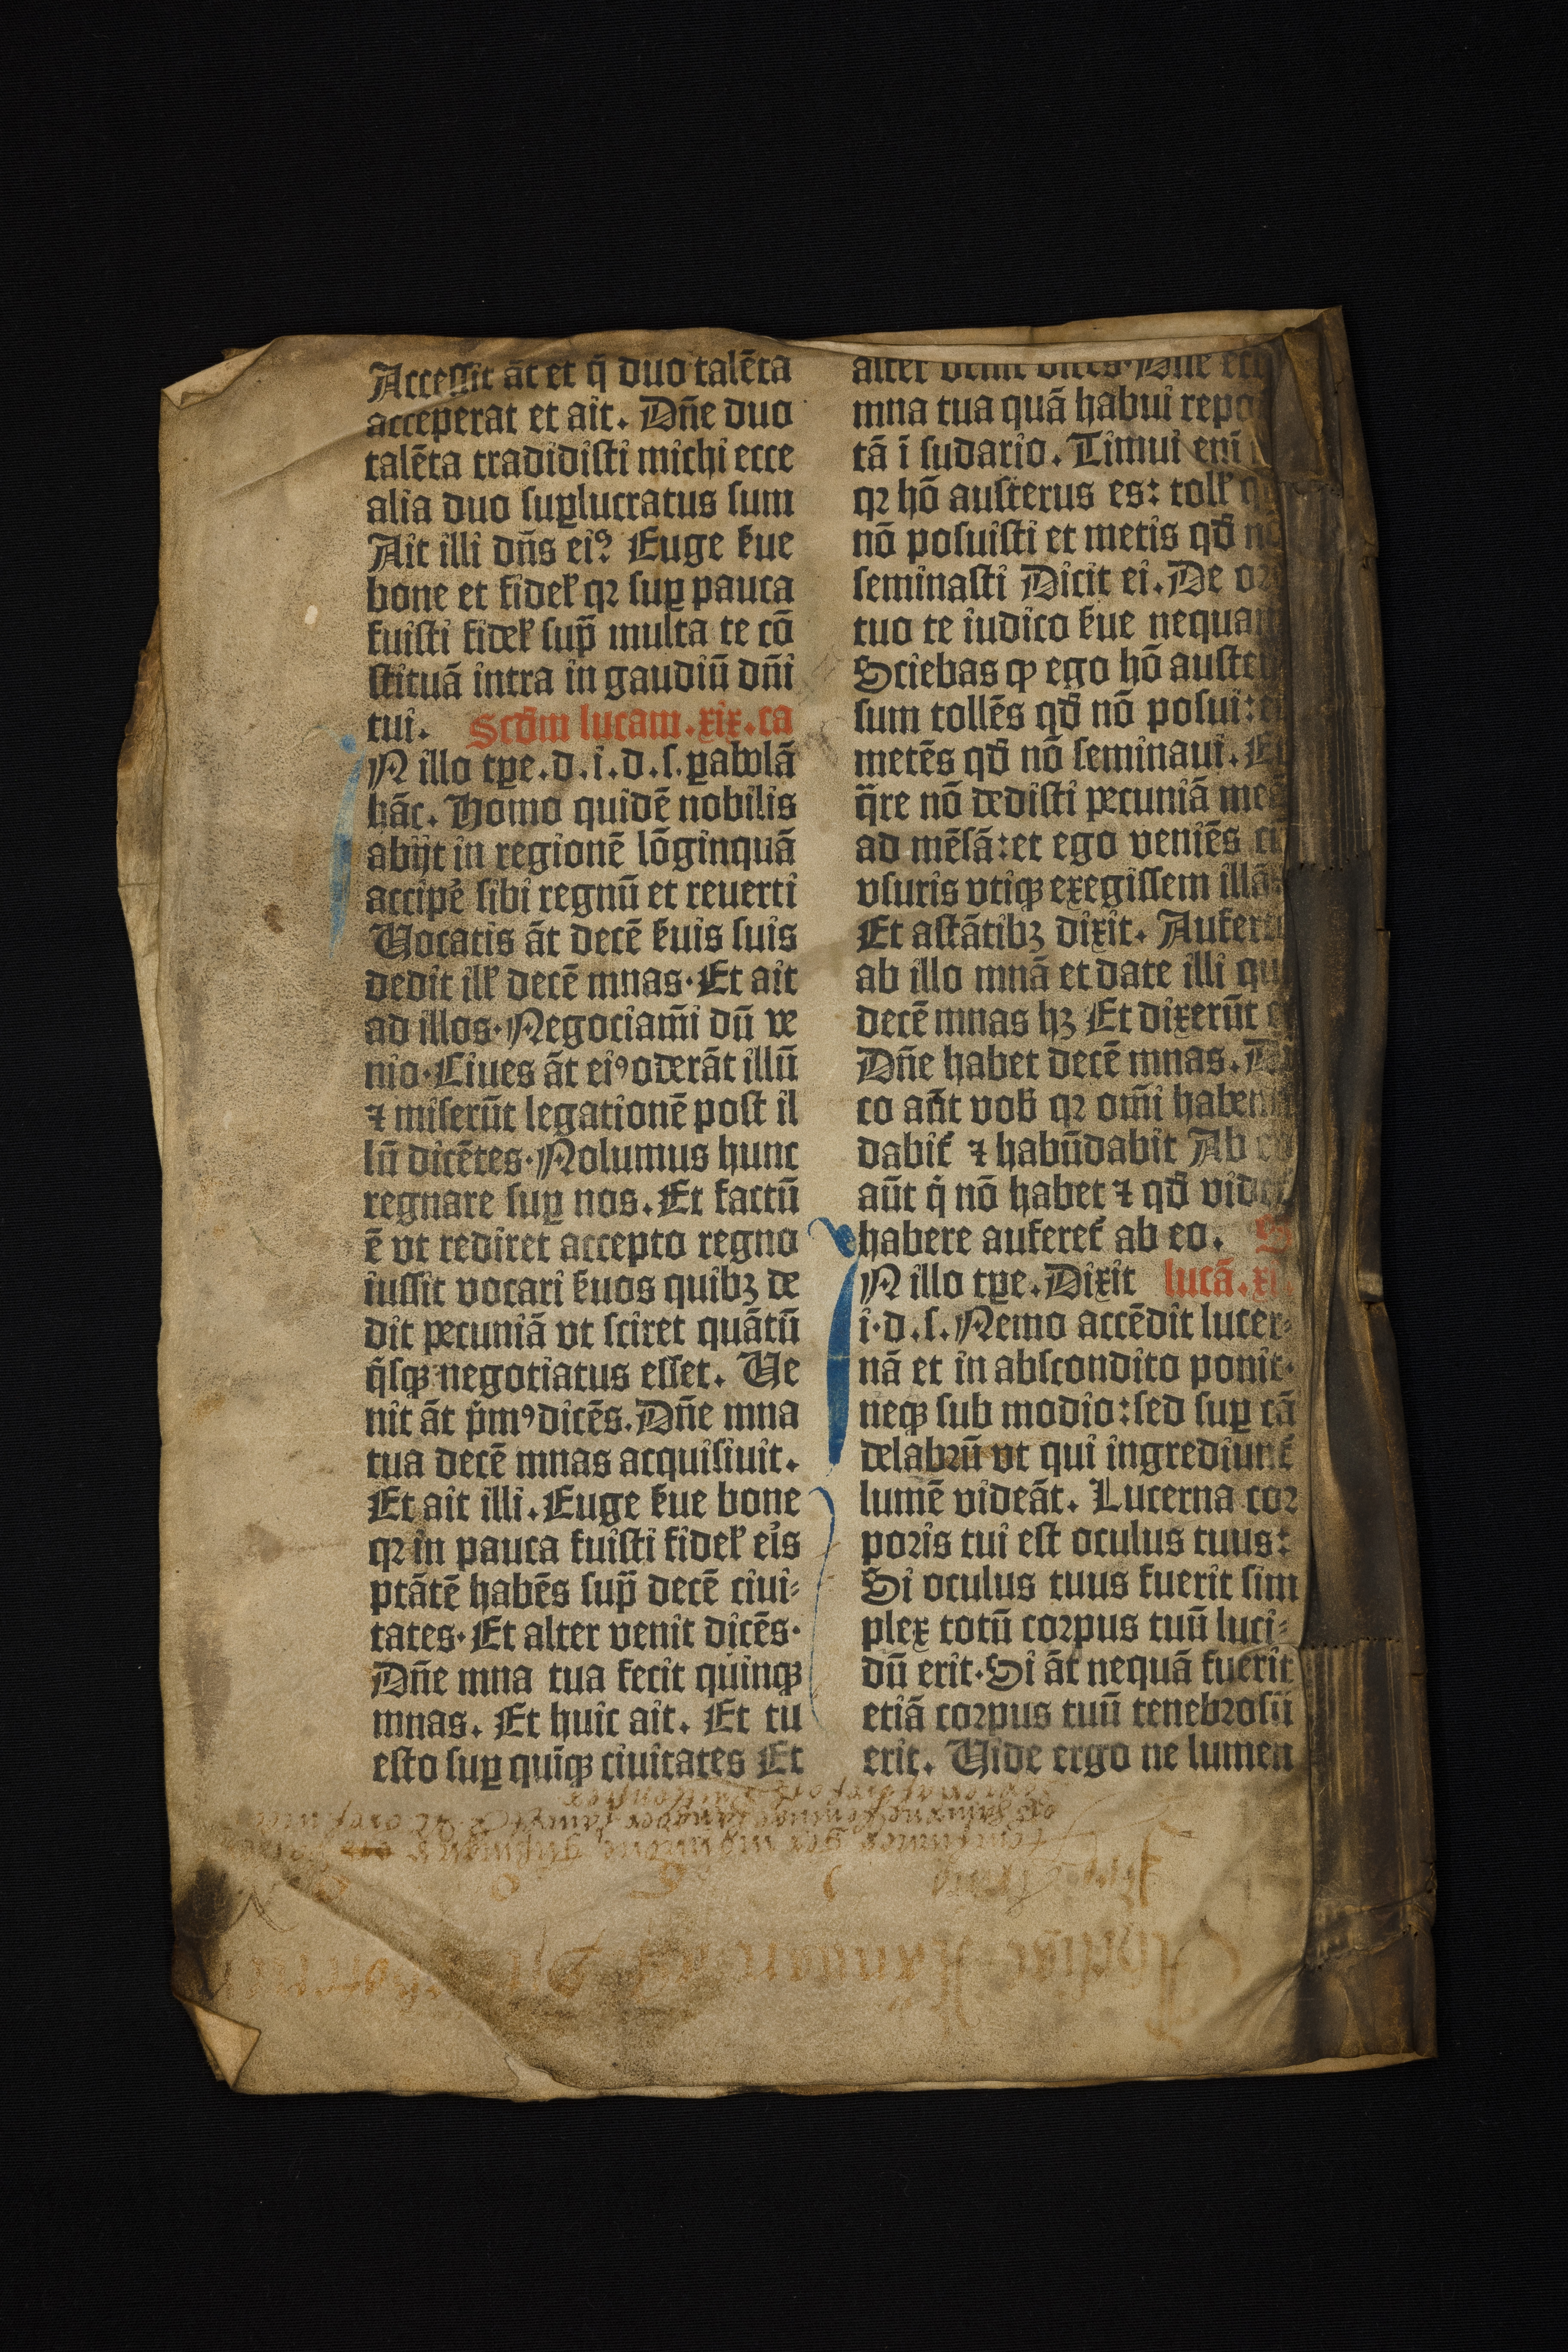 Accessit āt et q̄ duo talēta
acceperat et ait. Dn̄e duo
talēta tradidisti michi ecce
alia duo suꝑlucratus sum
Ait illi dn̄s eiꝰ Euge ẜue
bone et fidel̕ qꝛ suꝑ pauca
fuisti fidel̕ sup̄ multa te cō
stituā intra in gaudiū dn̄i
tui. Scd̄m lucam.xix.ca
N illo tꝑe.d.i.d.s.ꝑabolā
hāc. Homo quidē nobilis
abijt in regionē lōginquā
accipe̕ sibi regnū et reuerti
Uocatis āt decē ẜuis suis
dedit ill̕ decē mnas.Et ait
ad illos.Negociam̄i dū ve
nio.Ciues āt eiꝰoderāt illū
⁊ miserūt legationē post il
lū dicētes.Nolumus hunc
regnare suꝑ nos.Et factū
ē vt rediret accepto regno
iussit vocari ẜuos quibꝫ de
dit pecuniā vt sciret quātū
q̄sqꝫ negotiatus esset. Ue
nit āt p̄mꝰdicēs.Dn̄e mna
tua decē mnas acquisiuit.
Et ait illi.Euge ẜue bone
qꝛ in pauca fuisti fidel̕ ei̕s
ptātē habēs sup̄ decē ciui⸗
tates.Et alter venit dicēs.
Dn̄e mna tua fecit quinqꝫ
mnas. Et huic ait. Et tu
esto suꝑ quīqꝫ ciuitates Et
alter venit dices.Dn̄e
mna tua quā habui
tā ī sudario. Timui eni̅
qꝛ hō austerus es: toll̕
nō posuisti et metis qd̄
seminasti Dicit ei. De
tuo te iudico ẜue
Sciebas ꝙ ego hō
sum tollēs qd̄ nō posui:
metēs qd̄ nō seminaui.
q̄re nō dedisti pecuniā
ad mēsā:et ego veniēs
vsuris vtiqꝫ exegissem illā
Et astātibꝫ dixit.
ab illo mnā et date illi
decē mnas hꝫ Et dixerūt
Dn̄e habet decē mnas.
co aūt vob̄ qꝛ om̄i
dabit̕ ⁊ habūdabit Ab
aūt q̄ nō habet ⁊ qd̄
habere auferet̕ ab eo. S
N illo tꝑe.Dixit lucā.xi.
i.d.s.Nemo accēdit lucer⸗
nā et in abscondito ponit.
neqꝫ sub modio:sed suꝑ cā
delabꝛū vt qui ingrediunt̕
lumē videāt. Lucerna coꝛ
poꝛis tui est oculus tuus:
Si oculus tuus fuerit sim
plex totū coꝛpus tuū luci⸗
dū erit.Si āt nequā fuerit
etiā coꝛpus tuū tenebꝛosū
erit. Uide ergo ne lumen